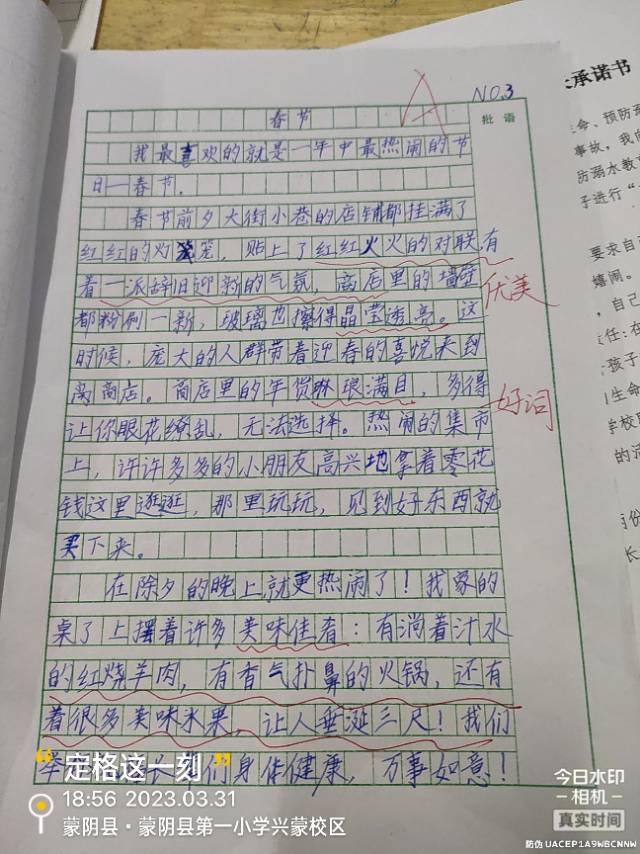 NO.3
批语
春节
我最喜欢的就是一年中最热闹的节
日一春节.
春节前夕大街小巷的店铺都挂满了
红红的灯笼，贴上了红红火火的对联,有
着一派辞旧迎新的气氛，商店里的墙壁
都粉刷一新，玻璃也擦得晶莹透亮。这
时候，庞大的人群带着迎春的喜悦来到
商店。商店里的年货琳琅满目，多得
让你眼花缭乱，无法选择。热闹的集市
上，许许多多的小朋友高兴地拿着零花
钱这里逛逛，那里玩玩，见到好东西就
买下来。
在除夕的晚上就更热闹了！我家的
桌子上摆着许多美味佳肴：有淌着汁水
的红烧羊肉，有香气扑鼻的火锅，还有
着很多美味水果，让人垂涎三尺！我们
举 们身体健康，万事如意！
优美
好词
A
承诺书
生命、预防
事故，我
防溺水教
子进行“
要求自
嬉闹。
，自己
任：在
孩子
生命
学校
的
“定格这一刻”
18:56 2023.03.31
蒙阴县·蒙阴县第一小学兴蒙校区
今日水印
-相机-
真实时间
防伪 UACEP1A9WBCNNW